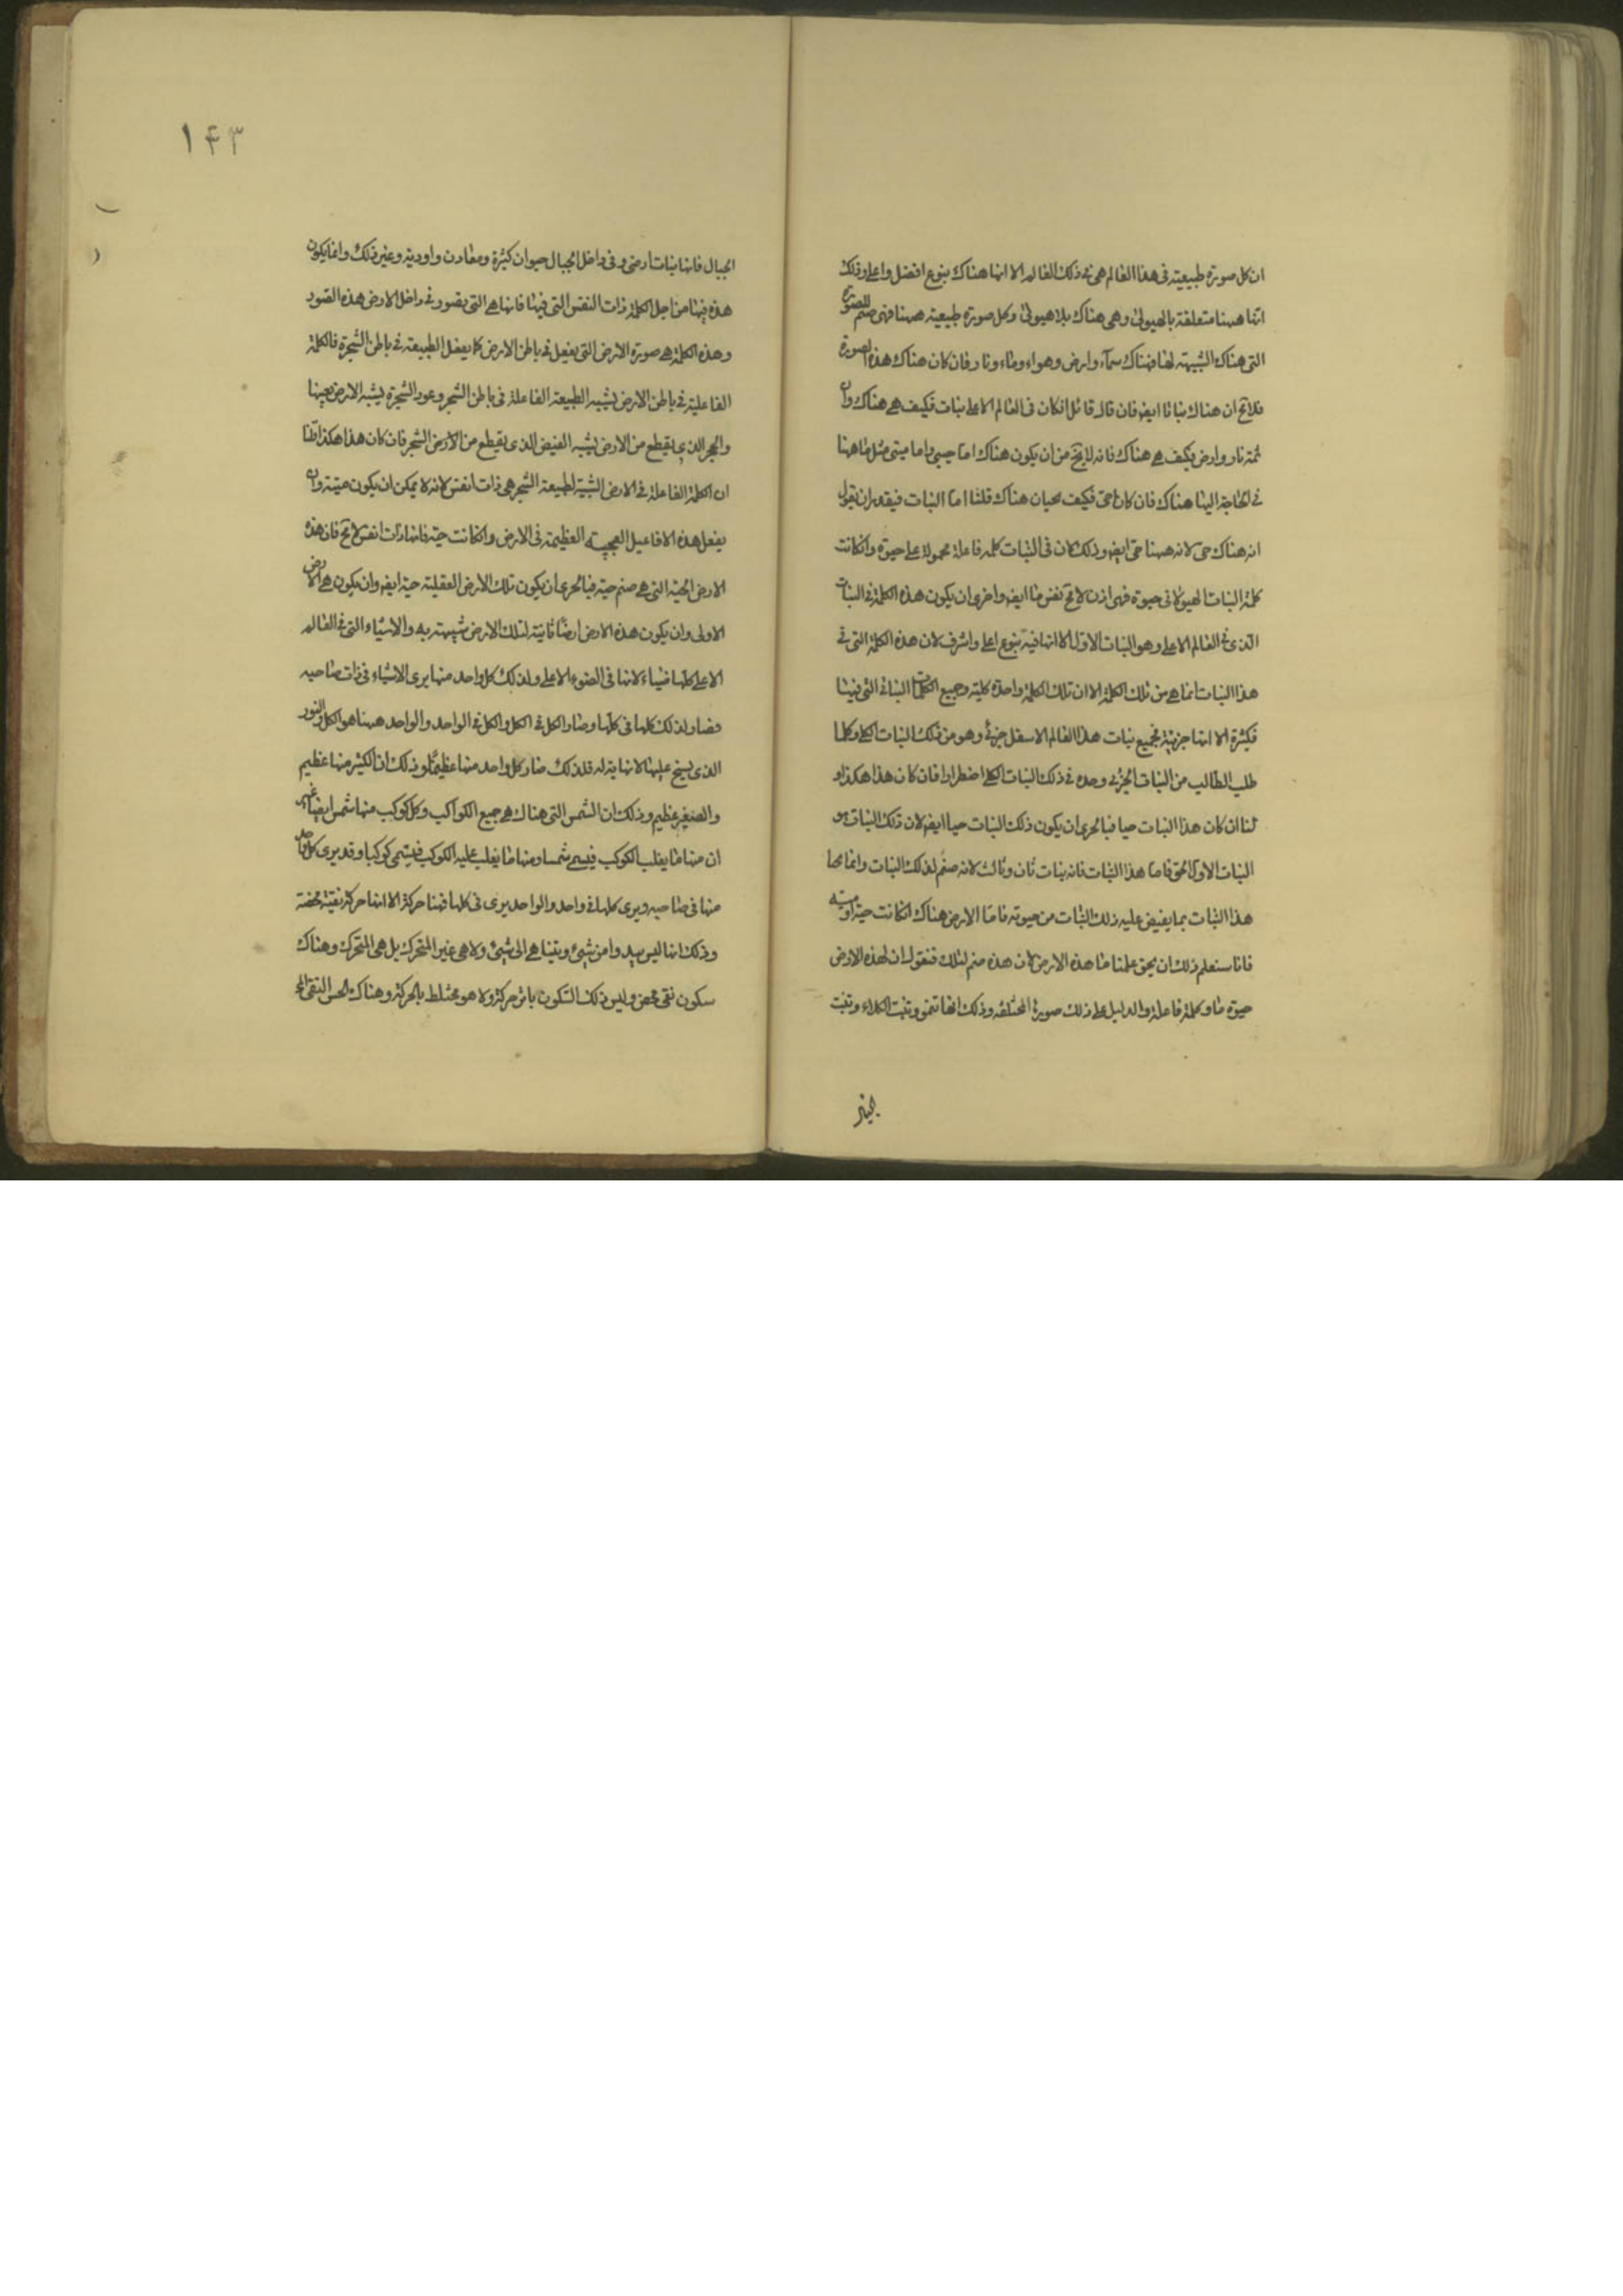 ان كل صورة طبيعية فى هذا العالم هى فى ذلك العالم الا انها هناك بنوع افضل واعلى وذلك
انها ههنا متعلقة بالهيولى وهى هناك بلا هيولى وكل صورة طبيعية ههنا فهى صنم للصورة
التى هناك الشبيهة لها فهناك سماء وارض وهواء وماء ونار فان كان هناك هذه الصورة
فلا مح ان هناك نباتا ايضا فان قال قائل انكان فى العالم الاعلى نبات فكيف هى هناك وان
ثمة نار وارض فكيف هى هناك فانه لا يخ من ان يكون هناك اما حيين واما ميتين مثل ماههنا
فما الحاجة اليها هناك فان كان حى فكيف يحيان هناك قلنا اما النبات فيقدر ان يقول
انه هناك حى لانه ههنا حى ايضا وذلك كان فى النبات كلمة فاعلة محمولة على حيوة وانكانت
كلمة النبات الهيولانى حيوة فهى اذن لا مح نفس ما ايضا واحرى ان يكون هذه الكلمة فى النبات
الذى فى العالم الاعلى وهو النبات الاول الا انها فيه بنوع اعلى واشرف لان هذه الكلمة التى فى
هذا النبات انما هى من تلك الكلمة الا ان تلك الكلمة واحدة كلية وجميع الكلمات النباتية التى فيها
فكثيرة الا انها جزئية فجميع نبات هذا العالم الاسفل جزئى وهو من ذلك النبات الكلى وكلما
طلب الطالب من النبات الجزئى وجده فى ذلك النبات الكلى اضطرارا فان كان هذا هكذا و
لنا ان كان هذا النبات حيا فبالحرى ان يكون ذلك النبات حيا ايضا لان ذلك النبات هو
النبات الاول الحق فاما هذا النبات فانه نبات ثان وثالث لانه صنم لذلك النبات وانما يحيا
هذا النبات بما يفيض عليه ذلك النبات من حيوته فاما الارض هناك انكانت حية او ميتة
فانا سنعلم ذلك ان نحن علمنا ما هذه الارض لان هذه صنم لتلك فنقول ان لهذه الارض
حيوة ما وكلمة فاعلة والدليل على ذلك صورها المختلفة وذلك انها تنمو وتنبت الكلاء وتنبت
۱۴۳
الجبال فانها نبات ارضى وفى داخل الجبال حيوان كثيرة ومعادن واودية وغير ذلك وانما يكون
هذه فيها من اجل الكلمة ذات النفس التى فيها فانها هى التى تصور فى داخل الارض هذه الصور
وهذه الكلمة هى صورة الارض التى يفعل فى باطن الارض كما يفعل الطبيعة فى باطن الشجرة فالكلمة
الفاعلية فى باطن الارض يشبه الطبيعة الفاعلة فى باطن الشجر وعود الشجرة يشبه الارض بعينها
والحجر الذى يقطع من الارض يشبه الغصن الذى يقطع من الشجر فان كان هذا هكذا قلنا
ان الكلمة الفاعلة فى الارض الشبيهة لطبيعة الشجر هى ذات نفس لانه لا يمكن ان يكون ميتة وان
يفعل هذه الافاعيل العجيبة العظيمة فى الارض وانكانت حية فانها ذات نفس لا مح فان هذه
الارض الحية التى هى صنم حية فبالحرى ان يكون تلك الارض العقلية حية ايضا وان يكون هى الارض
الاولى وان يكون هذه الارض ارضا ثانية لتلك الارض شبيهة به والاشياء التى فى العالم
الاعلى كلها ضياء لانها فى الضوء الاعلى ولذلك كل واحد منها يرى الاشياء فى ذات صاحبه
فصار لذلك كلها فى كلها وصار الكل فى الكل والكل فى الواحد والواحد ههنا هو الكل والنور
الذى يسنح عليها لا نهاية له فلذلك صار كل واحد منها عظيما وذلك ان الكبير منها عظيم
والصغير عظيم وذلك ان الشمس التى هناك هى جميع الكواكب وكل كوكب منها شمس ايضا غير
ان منها ما يغلب الكوكب فيسمى شمسا ومنها ما يغلب عليه الكوكب فيسمى كوكبا وقد يرى كل واحد
منها فى صاحبه ويرى كلها فى واحد والواحد يرى فى كلها فهنا حركة الا انها حركة نقية محضة
وذلك انها ليس يبدوا من شيئ ويتناهى الى شيئ ولا هى غير المتحرك بل هى المتحرك وهناك
سكون نقى محض وليس ذلك السكون باثر حركة ولا هو مختلط بالحركة وهناك الحسن النقى